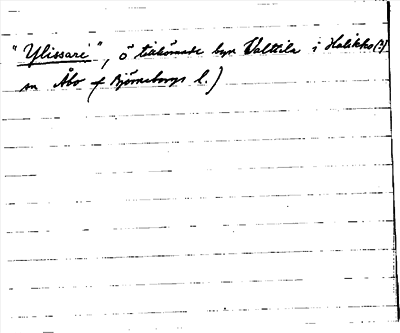 "Ylissari", ö tillhörande byn Valttila i Halikko(?)
sn Åbo o Björneborgs l.)